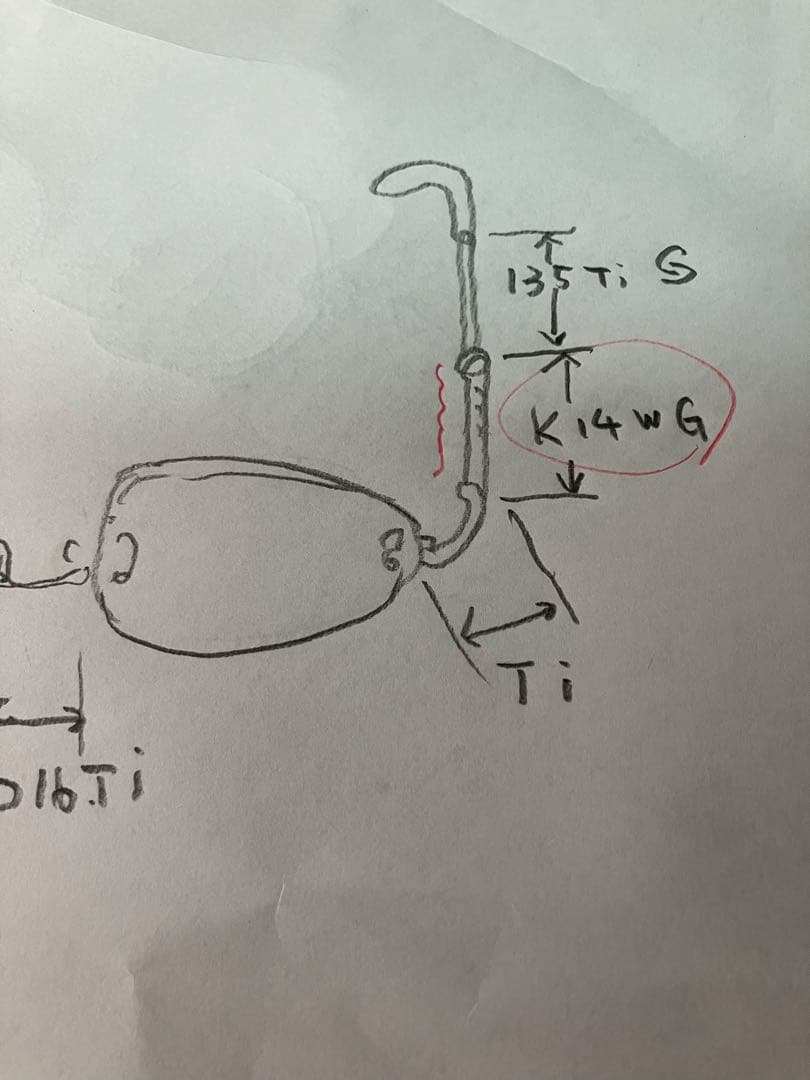 135 Ti S
K14WG
Ti
16.Ti